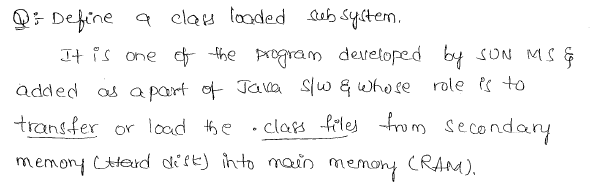 Q:- Define a class loaded sub system.
It is one of the program developed by SUN MS &
added as a part of Java s/w & whose role is to
transfer or load the .class files from secondary
memory (Hard disk) into main memory (RAM).